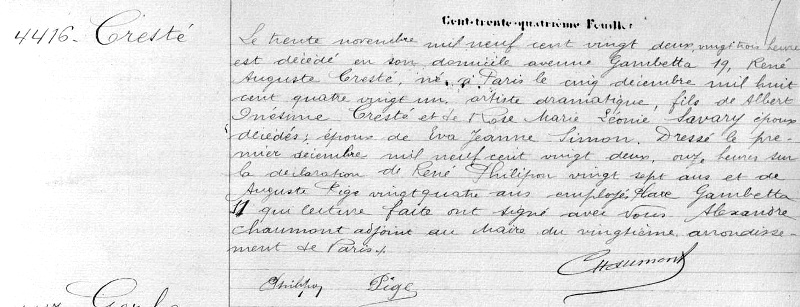 Cent-trente-quatrième Feuillet
4416 - Cresté
Le trente novembre mil neuf cent vingt deux, vingt trois heures
est décédé en son domicile avenue Gambetta 19, René
Auguste Cresté, né à Paris le cinq décembre mil huit
cent quatre vingt un, artiste dramatique, fils de Albert
Onésime Cresté et de Rose Marie Léonie Savary époux
décédés; époux de Eva Jeanne Simon. Dressé le pre-
mier décembre mil neuf cent vingt deux, onze heures sur
la déclaration de René Philipon vingt sept ans et de
Auguste Pige vingt quatre ans employés Place Gambetta
11 qui lecture faite ont signé avec Nous. Alexandre
Chaumont adjoint au Maire du vingtième arrondisse-
ment de Paris.
Philipon Pige Chaumont